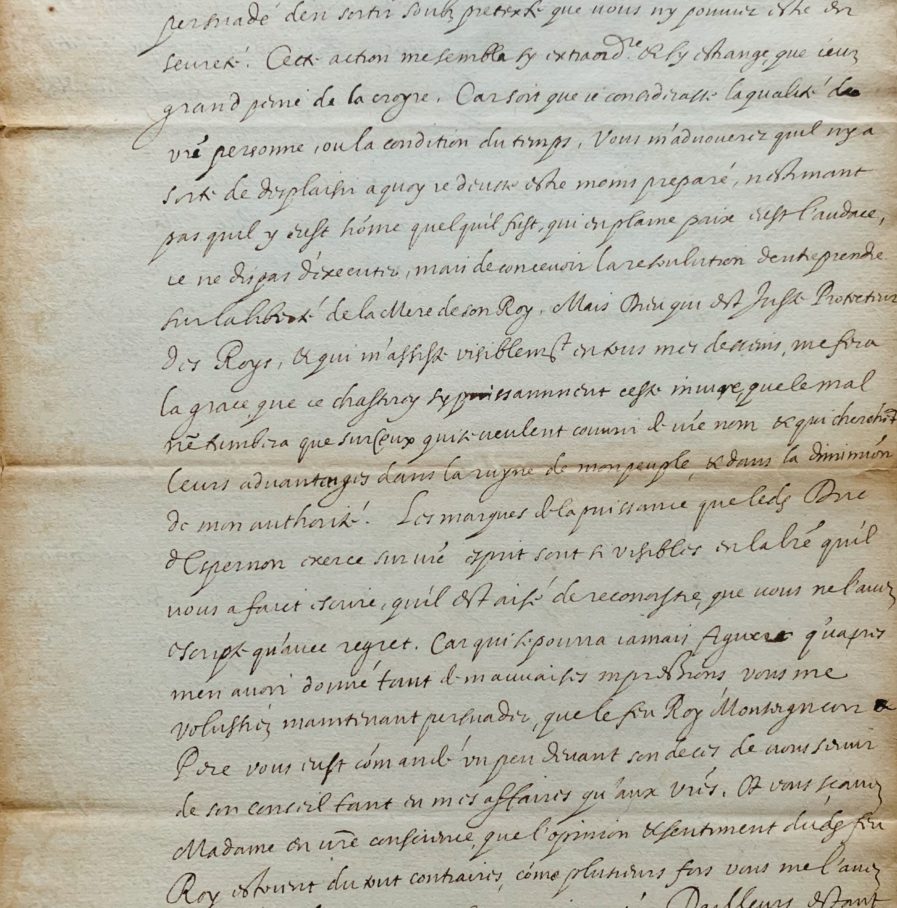 persuadé d'en sortir soubz pretexte que vous ny pouviez estre en
seureté. Ceste action me sembla sy extraord.re & sy estrange, que i'euz
grand peine de la croyre. Car soit que ie considerasse la qualité de
vr̃e personne, ou la condition du temps, Vous m'advouerez quil n'y a
sorte de desplaisir a quoy ie deusse estre moins preparé, n'estimant
pas quil y eust hõme quel qu'il fust, qui en plaine paix eust l'audace,
ie ne dis pas d'executer, mais de concevoir la resolution d'entreprendre
sur la liberté de la Mere de son Roy. Mais Dieu qui est Juste Protecteur
des Roys, & qui m'assiste visiblemt en tous mes desseins, me fera
la grace, que ie chastiray sy puissamment ceste iniure, que le mal
ne tumbera que sur ceux qui se veulent couvrir de vr̃e nom & qui cherchent
leurs advantages dans la ruyne de mon peuple, & dans la diminũon
de mon authorité. Les marques de la puissance que leds Duc
d'Espernon exerce sur vr̃e esprit sont si visibles en la lr̃e qu'il
vous a faict escrire, qu'il est aisé de recognoistre, que vous ne l'avez
escripte qu'avec regret. Car qui se pourra iamais figurer qu'apres
m'en avoir donné tant de mauvaises impressions vous me
voulussiez maintenant persuader, que le feu Roy Monseigneur &
Pere vous eust cõmandé un peu devant son deces de vous servir
de son conseil tant en mes affaires qu'aux vr̃es. Et vous sçavez
Madame en vr̃e conscience, que l'opinion & sentiment duds feu
Roy estoient du tout contraires, cõme plusieurs fois vous me l'avez
D'ailleurs estant